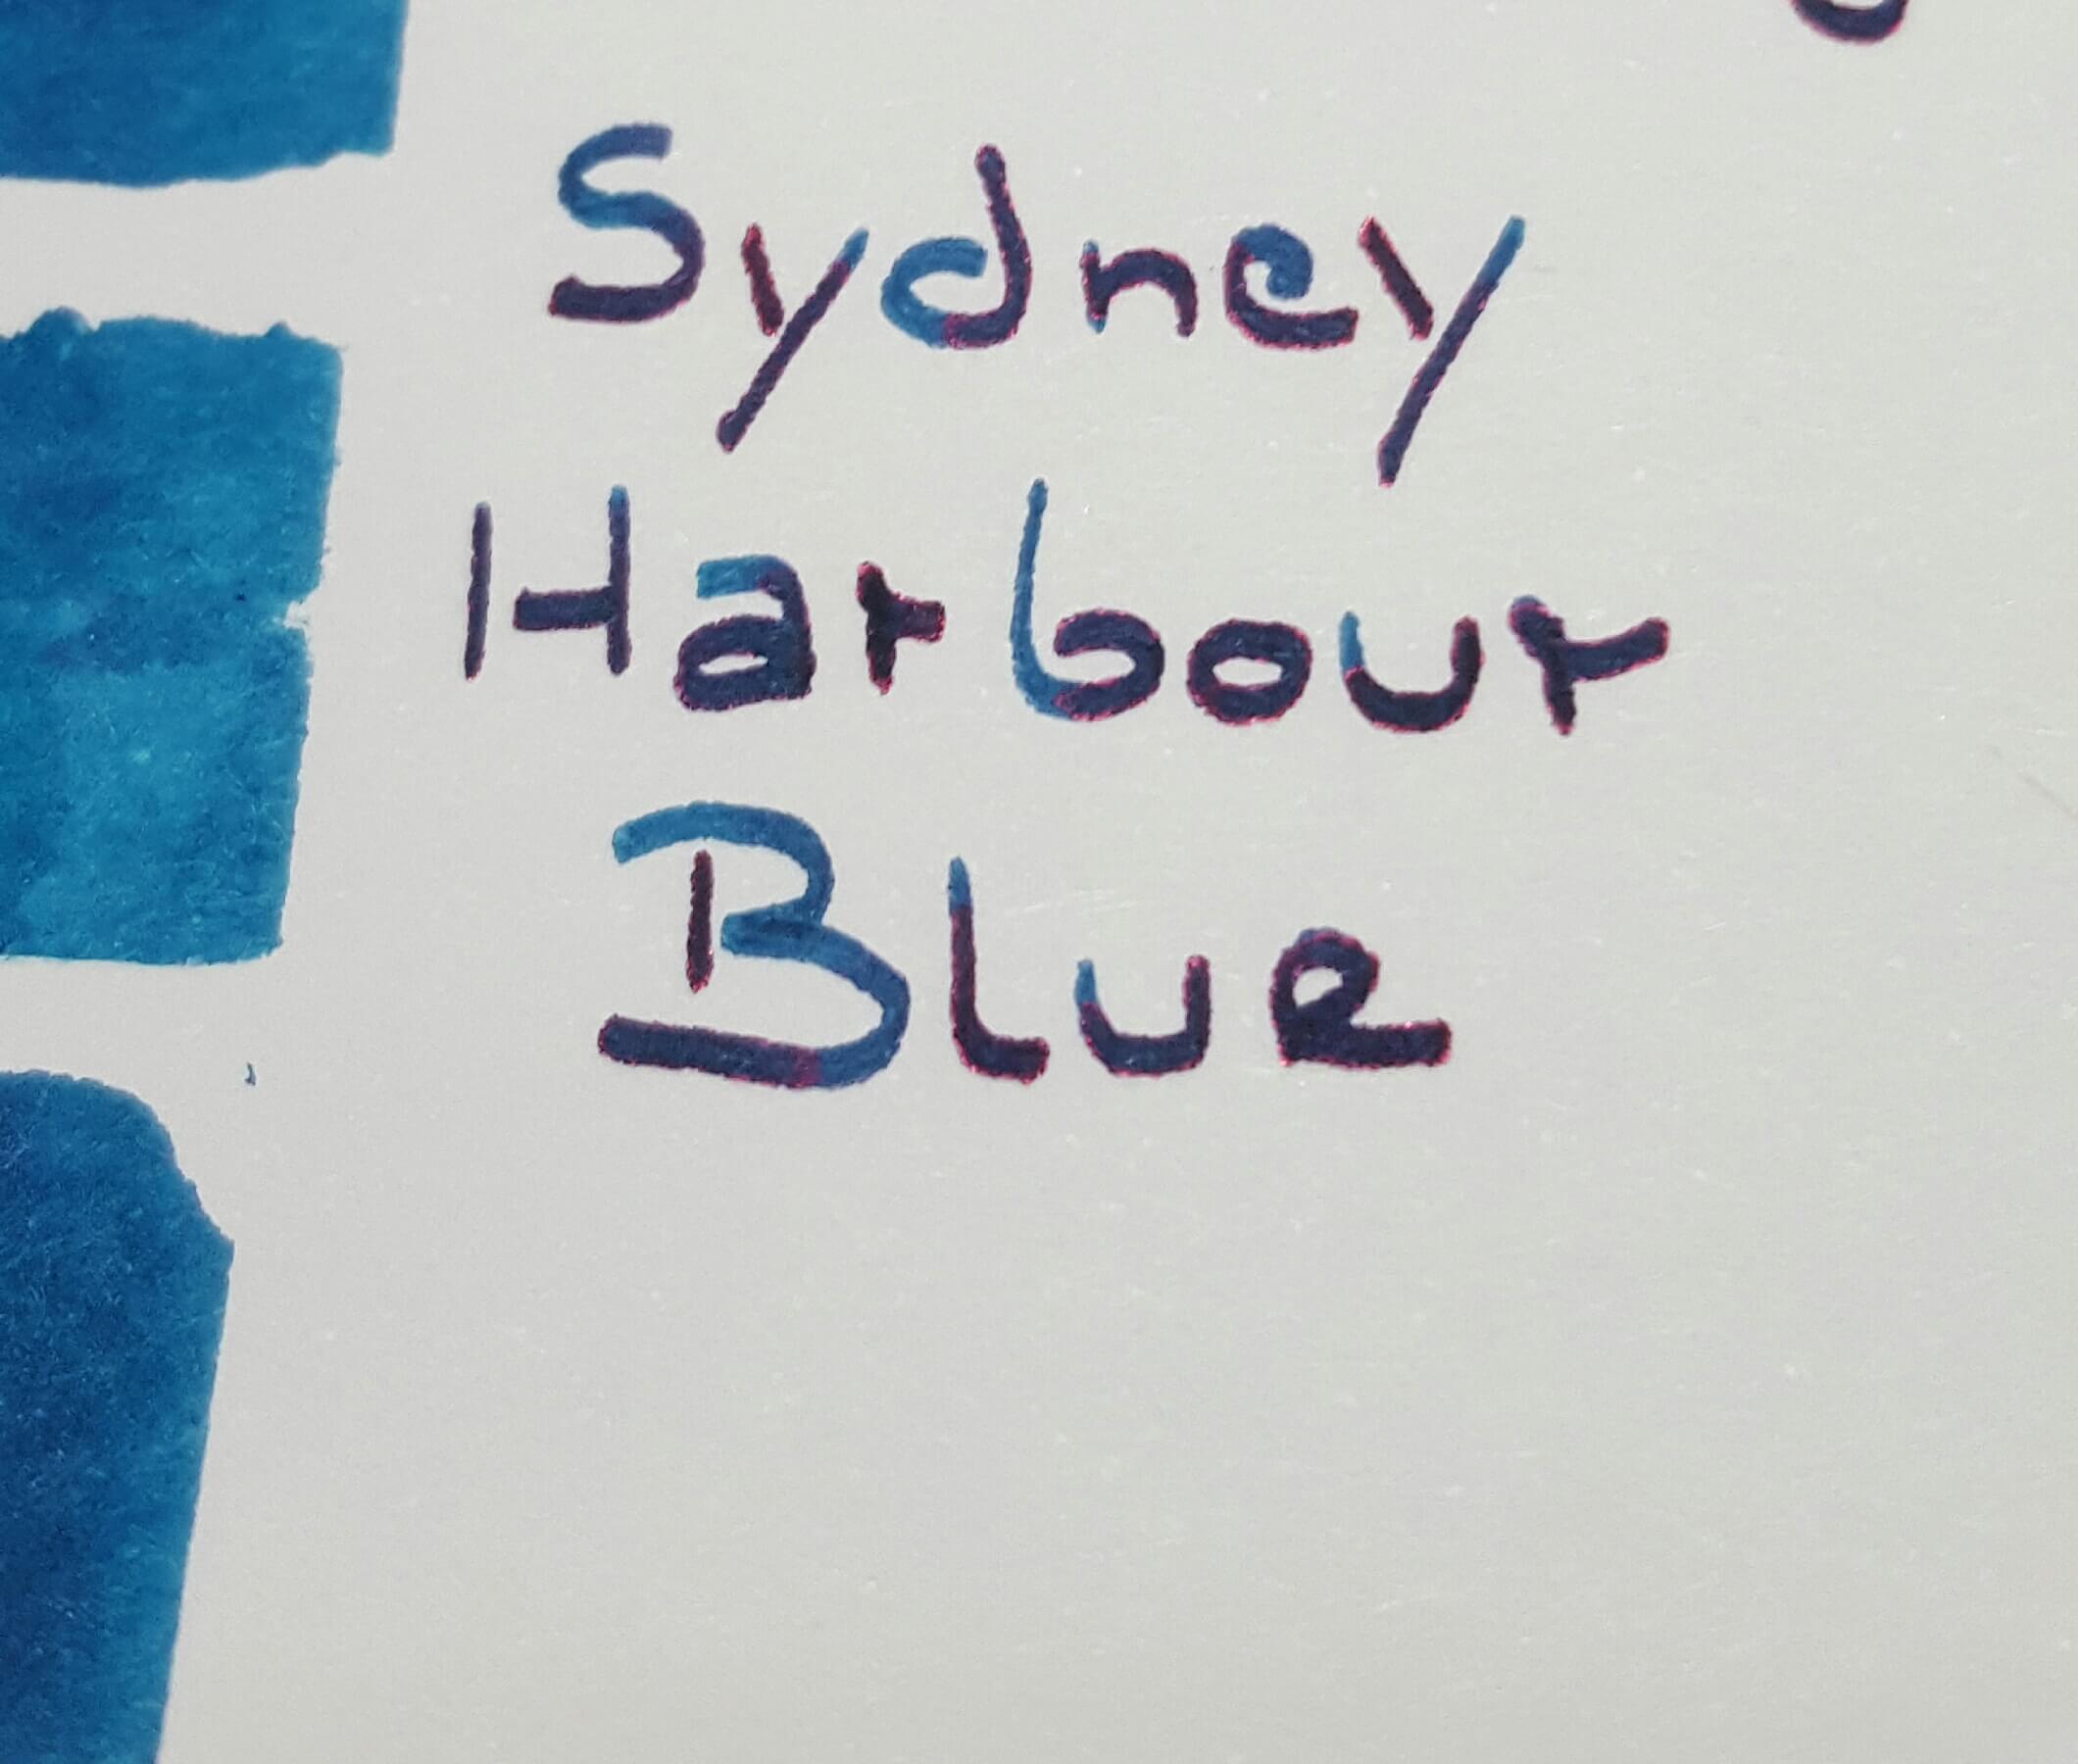 Sydney
Harbour
Blue